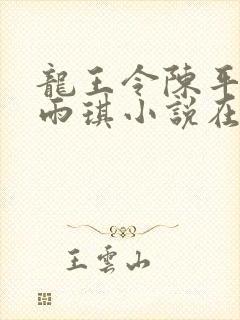 龍王令陳平
雨琪小說在
王雲山